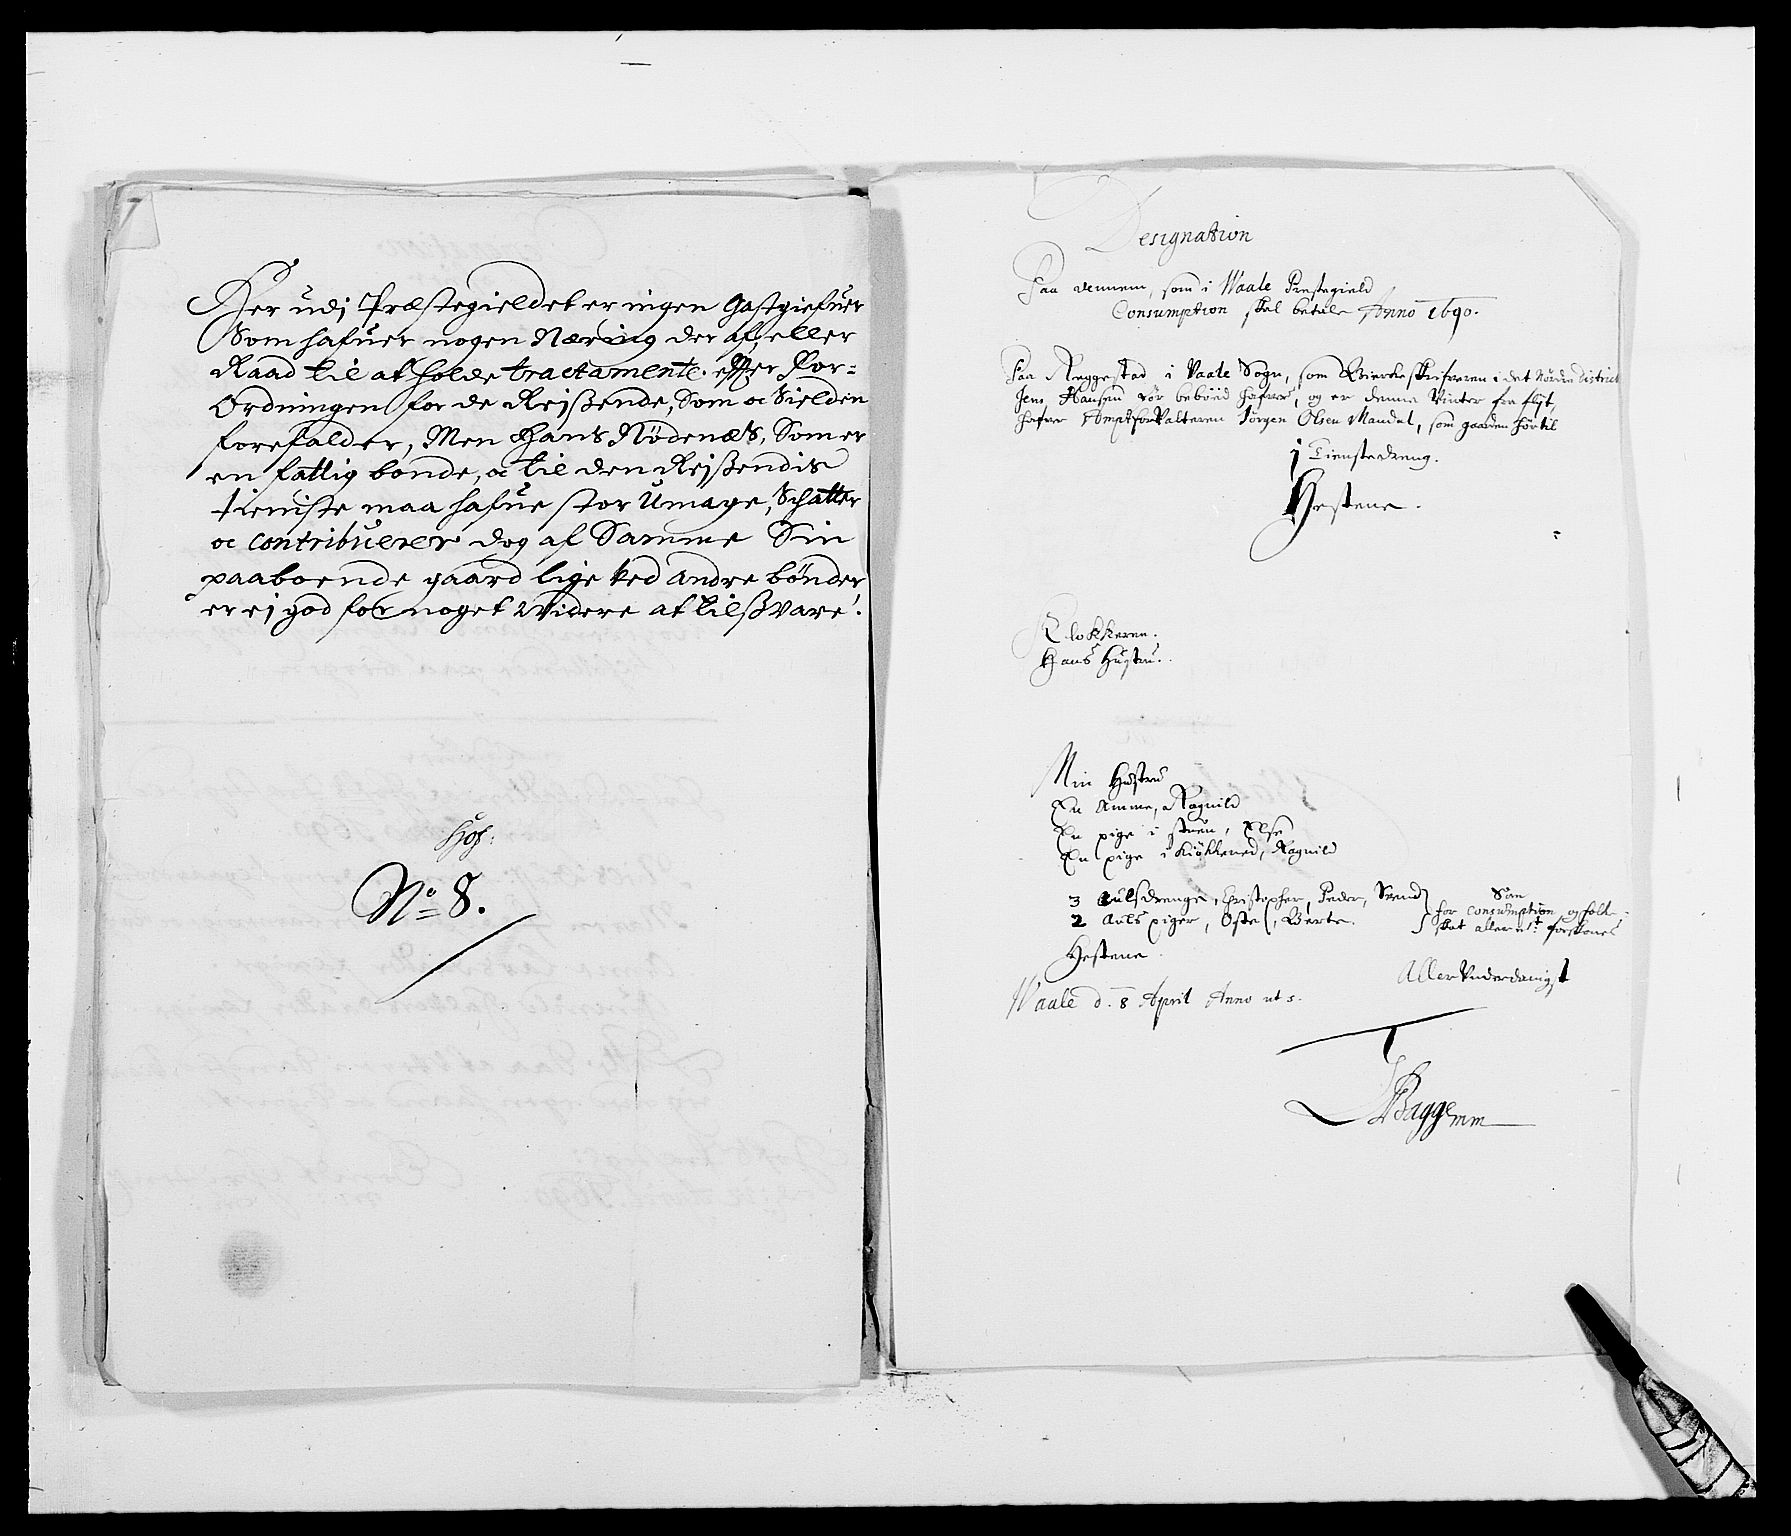 7
Her udj Præstegieldet er ingen Gastgiefuer
Som hafuer nogen Næring der af, eller
Raad til at holde tractamente. effter For-
Ordningen for de Rejßende, Som oc Sielden
forefalder, Men Hans Nödenæs, Som er
en fattig bonde, oc til den Rejßendis
tieniste maa hafue stor Umage, Schatter
oc contribuerer dog af Samme Sin
paaboende gaard lige ved andre bønder
er ej god for noget Widere at tilßvare.
Hof:
No 8.
Designation
Paa dennem, som i Waale Prestegield
Consumption skal betale Anno 1690.
Paa Reggestad i Vaale Sogn, som Bierkeskrifveren i det Nørdre District
Jens Hansen før beboed hafver, og er denne Vinter fra flyt,
hafver Ampts forvalteren Jörgen Olsen Mandal, som gaarden hörer til
1 Tienstedreng.
Hestene.
Klokkeren.
Hans Hustru.
Min Hustru
En Amme, Ragnild
En pige i stuen, Else
En pige i Kiökkened, Ragnild
3 Aulsdrenge, Christopher, Peder, Svend
2 Auls piger, Berte.
Som
for Consumption og folke-
skat allern:t forskones
Hestene.
Aller Underdanigst
Waale d. 8 April Anno ut s.
Bagge mm